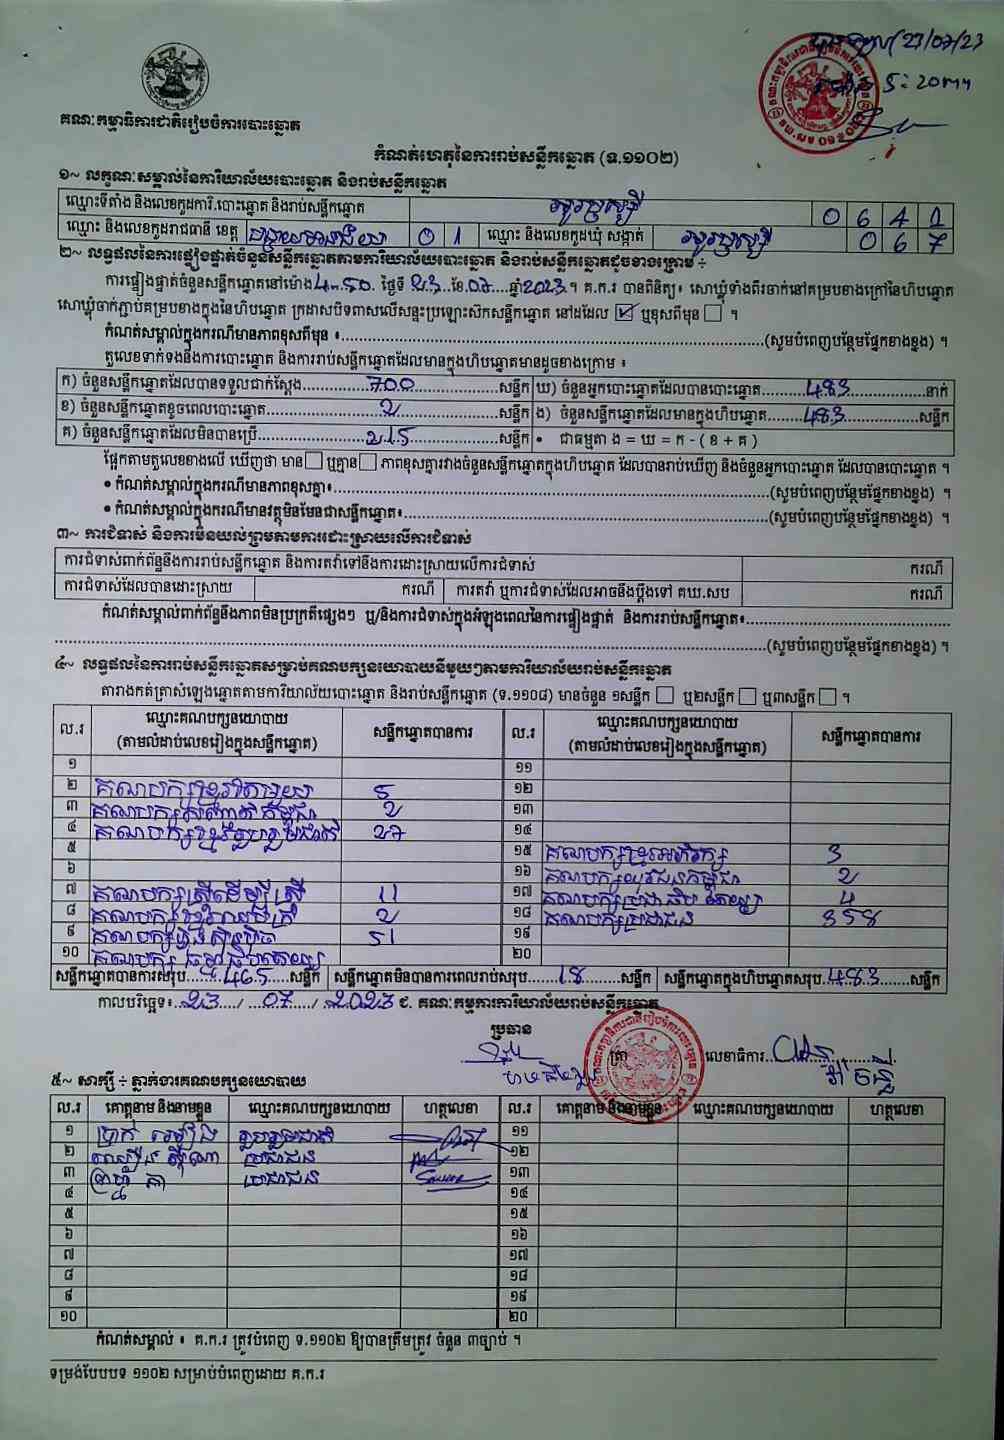 23/07/23
5:20
គណៈកម្មាធិការជាតិរៀបចំការបោះឆ្នោត
កំណត់ហេតុនៃការរាប់សន្លឹកឆ្នោត (ទ.១១០២)
១~ លក្ខណៈសម្គាល់នៃការិយាល័យបោះឆ្នោត និងរាប់សន្លឹកឆ្នោត
ឈ្មោះទីតាំង និងលេខកូដការិ.បោះឆ្នោត និងរាប់សន្លឹកឆ្នោត 0 6 4 1
ឈ្មោះ និងលេខកូដរាជធានី ខេត្ត បន្ទាយមានជ័យ 0 1 ឈ្មោះ និងលេខកូដឃុំ សង្កាត់ 0 6 7
២~ លទ្ធផលនៃការផ្ទៀងផ្ទាត់ចំនួនសន្លឹកឆ្នោតតាមការិយាល័យបោះឆ្នោត និងរាប់សន្លឹកឆ្នោតដូចខាងក្រោម ÷
ការផ្ទៀងផ្ទាត់ចំនួនសន្លឹកឆ្នោតនៅម៉ោង ថ្ងៃទី 23 ខែ 07 ឆ្នាំ 2023 ។ គ.ក.រ បានពិនិត្យ៖ សោឃ្លុំទាំងពីរចាក់នៅគម្របខាងក្រៅនៃហិបឆ្នោត
សោឃ្លុំចាក់ភ្ជាប់គម្របខាងក្នុងនៃហិបឆ្នោត ក្រដាសបិទពាសលើសន្ទះប្រឡោះស៊កសន្លឹកឆ្នោត នៅដដែល ☑ ឬខុសពីមុន ☐ ។
កំណត់សម្គាល់ក្នុងករណីមានភាពខុសពីមុន ៖ (សូមបំពេញបន្ថែមផ្នែកខាងខ្នង) ។
តួលេខទាក់ទងនឹងការបោះឆ្នោត និងការរាប់សន្លឹកឆ្នោតដែលមានក្នុងហិបឆ្នោតមានដូចខាងក្រោម ៖
ក) ចំនួនសន្លឹកឆ្នោតដែលបានទទួលជាក់ស្តែង 700 សន្លឹក ឃ) ចំនួនអ្នកបោះឆ្នោតដែលបានបោះឆ្នោត 483 នាក់
ខ) ចំនួនសន្លឹកឆ្នោតខូចពេលបោះឆ្នោត 2 សន្លឹក ង) ចំនួនសន្លឹកឆ្នោតដែលមានក្នុងហិបឆ្នោត 483 សន្លឹក
គ) ចំនួនសន្លឹកឆ្នោតដែលមិនបានប្រើ 215 សន្លឹក • ជាធម្មតា ង = ឃ = ក - ( ខ + គ )
ផ្អែកតាមតួលេខខាងលើ ឃើញថា មាន ☐ ឬគ្មាន ☐ ភាពខុសគ្នារវាងចំនួនសន្លឹកឆ្នោតក្នុងហិបឆ្នោត ដែលបានរាប់ឃើញ និងចំនួនអ្នកបោះឆ្នោត ដែលបានបោះឆ្នោត ។
• កំណត់សម្គាល់ក្នុងករណីមានភាពខុសគ្នា៖ (សូមបំពេញបន្ថែមផ្នែកខាងខ្នង) ។
• កំណត់សម្គាល់ក្នុងករណីមានវត្ថុមិនមែនជាសន្លឹកឆ្នោត៖ (សូមបំពេញបន្ថែមផ្នែកខាងខ្នង) ។
៣~ ការជំទាស់ និងការមិនយល់ព្រមតាមការដោះស្រាយលើការជំទាស់
ការជំទាស់ពាក់ព័ន្ធនឹងការរាប់សន្លឹកឆ្នោត និងការតវ៉ាទៅនឹងការដោះស្រាយលើការជំទាស់ ករណី
ការជំទាស់ដែលបានដោះស្រាយ ករណី ការតវ៉ា ឬការជំទាស់ដែលអាចនឹងប្តឹងទៅ គឃ.សប ករណី
កំណត់សម្គាល់ពាក់ព័ន្ធនឹងភាពមិនប្រក្រតីផ្សេងៗ ឬ/និងការជំទាស់ក្នុងអំឡុងពេលនៃការផ្ទៀងផ្ទាត់ និងការរាប់សន្លឹកឆ្នោត៖
(សូមបំពេញបន្ថែមផ្នែកខាងខ្នង) ។
៤~ លទ្ធផលនៃការរាប់សន្លឹកឆ្នោតសម្រាប់គណបក្សនយោបាយនីមួយៗតាមការិយាល័យរាប់សន្លឹកឆ្នោត
តារាងកត់ត្រាសំឡេងឆ្នោតតាមការិយាល័យបោះឆ្នោត និងរាប់សន្លឹកឆ្នោត (ទ.១១០៨) មានចំនួន ១សន្លឹក ☐ ឬ២សន្លឹក ☐ ឬ៣សន្លឹក ☐ ។
ល.រ ឈ្មោះគណបក្សនយោបាយ (តាមលំដាប់លេខរៀងក្នុងសន្លឹកឆ្នោត) សន្លឹកឆ្នោតបានការ ល.រ ឈ្មោះគណបក្សនយោបាយ (តាមលំដាប់លេខរៀងក្នុងសន្លឹកឆ្នោត) សន្លឹកឆ្នោតបានការ
១ ១១
២ គណបក្សខ្មែររួបរួម 5 ១២
៣ គណបក្ស 2 ១៣
៤ គណបក្ស 27 ១៤
៥ ១៥ គណបក្សខ្មែរអភិរក្ស 3
៦ ១៦ គណបក្សយុវជនកម្ពុជា 2
៧ គណបក្សស្ត្រីដើម្បីស្ត្រី 11 ១៧ គណបក្សប្រជាធិបតេយ្យ 4
៨ គណបក្ស 2 ១៨ គណបក្សប្រជាជន 358
៩ គណបក្សហ្វ៊ុនស៊ិនប៉ិច 51 ១៩
១០ គណបក្ស ២០
សន្លឹកឆ្នោតបានការសរុប 465 សន្លឹក សន្លឹកឆ្នោតមិនបានការពេលរាប់សរុប 18 សន្លឹក សន្លឹកឆ្នោតក្នុងហិបឆ្នោតសរុប 483 សន្លឹក
កាលបរិច្ឆេទ៖ 23 / 07 / 2023 ៩. គណៈកម្មការការិយាល័យរាប់សន្លឹកឆ្នោត
ប្រធាន ត្រា លេខាធិការ
៥~ សាក្សី ÷ ភ្នាក់ងារគណបក្សនយោបាយ
ល.រ គោត្តនាម និងនាមខ្លួន ឈ្មោះគណបក្សនយោបាយ ហត្ថលេខា ល.រ គោត្តនាម និងនាមខ្លួន ឈ្មោះគណបក្សនយោបាយ ហត្ថលេខា
១ ប្រាក់ ១១
២ ប្រជាជន ១២
៣ ប្រជាជន ១៣
៤ ១៤
៥ ១៥
៦ ១៦
៧ ១៧
៨ ១៨
៩ ១៩
១០ ២០
កំណត់សម្គាល់ ៖ គ.ក.រ ត្រូវបំពេញ ទ.១១០២ ឱ្យបានត្រឹមត្រូវ ចំនួន ៣ច្បាប់ ។
ទម្រង់បែបបទ ១១០២ សម្រាប់បំពេញដោយ គ.ក.រ